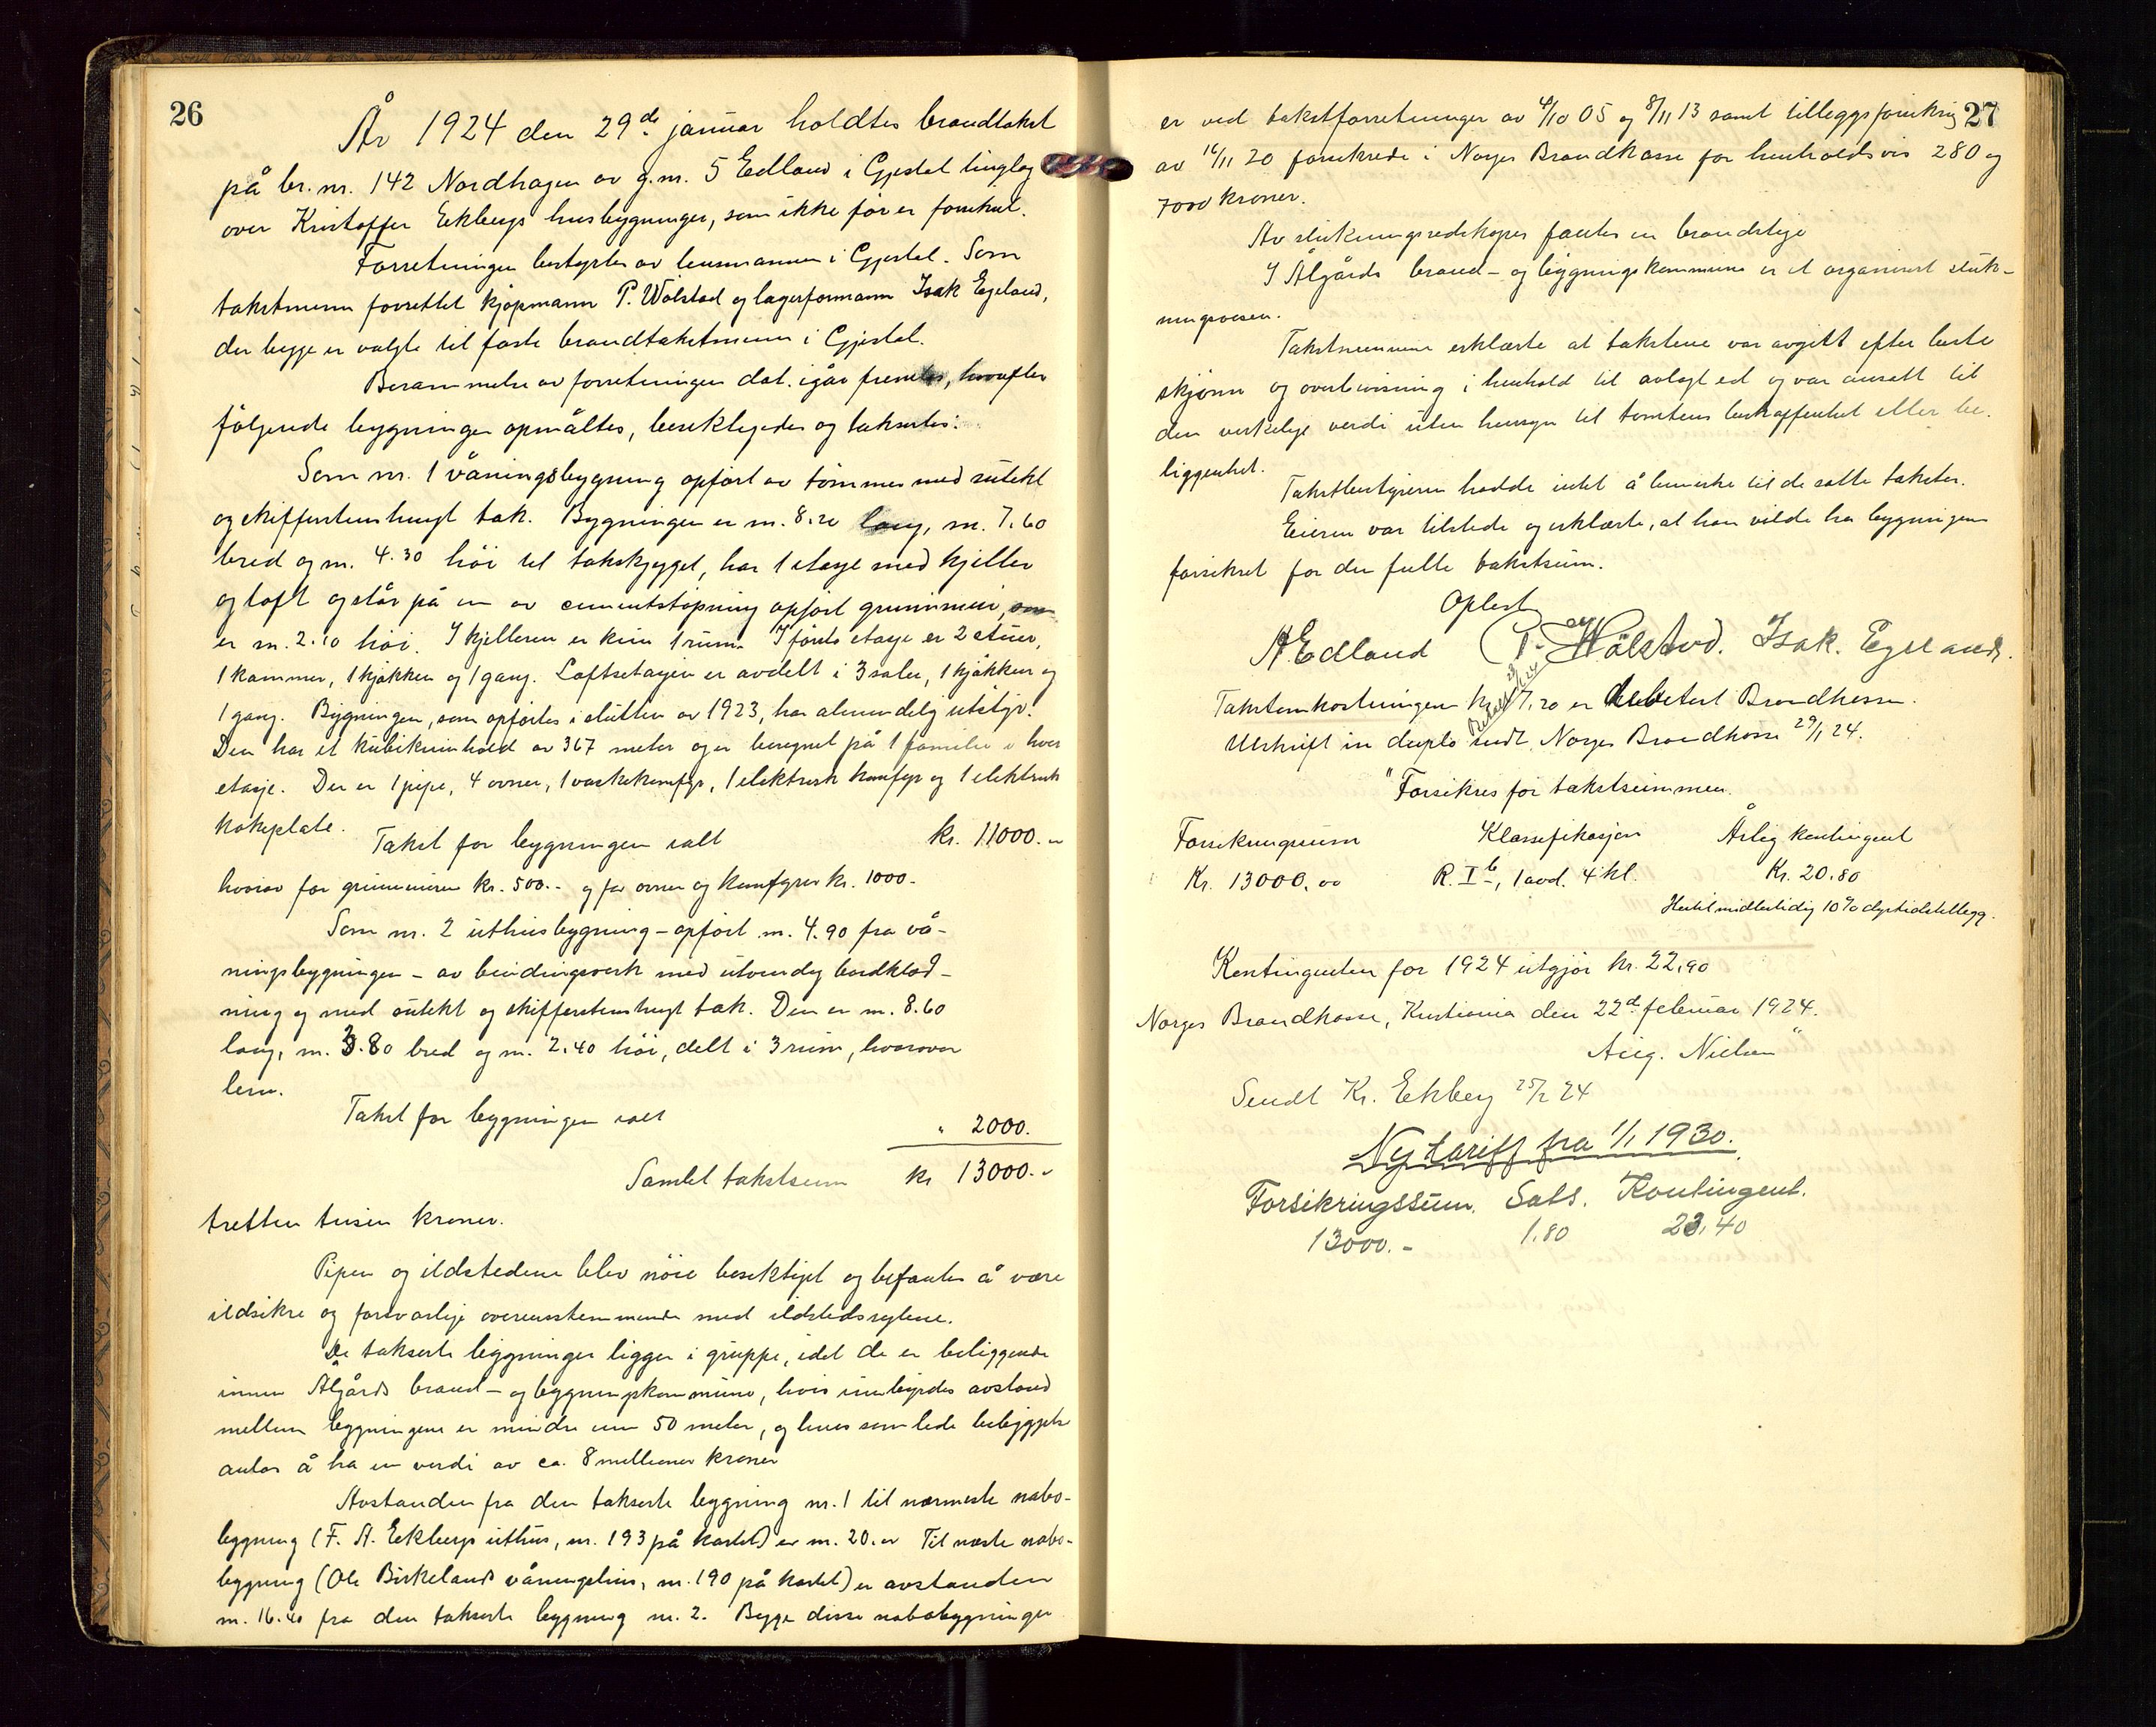 26
År 1924 den 29de januar holdtes brandtakst
på br. nr. 142 Nordhagen av g.nr. 5 Edland i Gjestal tinglag
over Kristoffer Eekbergs husbygninger, som ikke før er forsikret.
Forretningen bestyrtes av lensmannen i Gjestal. Som
takstmenn forrettet kjøpmann P. Wølstad og lagerformann Isak Egeland,
der begge er valgte til faste brandtakstmenn i Gjestal.
Berammelse av forretningen dat. igår fremla, hvorefter
følgende bygninger opmåltes, besiktigedes og takseres:
Som nr. 1 våningsbygning opført av tømmer med sutekt
og skifferstenhengt tak. Bygningen er m. 8.20 lang, m. 7.60
bred og m. 4.30 høi til takskjegget, har 1 etasje med kjeller
og loft og står på en av cementstøpning opført grunnmur, som
er m. 2.10 høi. I kjelleren er kun 1 rum. I første etasje er 2 stuer,
1 kammer, 1 kjøkken og 1 gang. Loftsetasjen er avdelt i 3 saler, 1 kjøkken og
1 gang. Bygningen, som opførtes i slutten av 1923, har almindelig utstyr.
Den har et kubikinnhold av 367 meter og er beregnet på 1 familie i hver
etasje. Der er 1 pipe, 4 ovner, 1 vaskekomfyr, 1 elektrisk komfyr og 1 elektrisk
kokeplate.
Takst for bygningen ialt kr. 11000.00
hvorav for grunnmuren kr. 500.- og for ovner og komfyrer kr. 1000.-
Som nr. 2 uthusbygning - opført m. 4.90 fra vå-
ningsbygningen - av bindingsverk med utvendig bordklæd-
ning og med sutekt og skifferstenhengt tak. Den er m. 8.60
lang, m. 3.80 bred og m. 2.40 høi, delt i 3 rum, hvorover
lem.
Takst for bygningen ialt " 2000.
Samlet takstsum kr 13000.-
tretten tusen kroner.
Pipen og ildstedene blev nøie besiktiget og befantes å være
ildsikre og forsvarlige overensstemmende med ildstedsreglene.
De takserte bygninger ligger i gruppe, idet de er beliggende
innen Ålgårds brand- og bygningskommune, hvis innbyrdes avstand
mellem bygningene er mindre enn 50 meter, og hvis samlede bebyggelse
antas å ha en verdi av ca. 8 millioner kroner
Avstanden fra den takserte bygning nr. 1 til nærmeste nabo-
bygning (F. A. Eekbergs uthus, nr. 193 på kartet) er m. 20.00 Til næste nabo-
bygning (Ole Birkelands våningshus, nr. 190 på kartet) er avstanden
m. 16.40 fra den takserte bygning nr. 2. Begge disse nabobygninger
27
er ved takstforretninger av 4/10 05 og 8/11 13 samt tilleggsforsikring
av 16/11 20 forsikrede i Norges Brandkasse for henholdsvis 280 og
7000 kroner.
Av slukningsredskaper fantes en brandstige
I Ålgårds brand- og bygningskommune er et organisert sluk-
ningsvesen.
Takstmennene erklærte at takstene var avgitt efter beste
skjønn og overbevisning i henhold til avlagt ed og var ansatt til
den virkelige verdi uten hensyn til tomtens beskaffenhet eller be-
liggenhet.
Takstbestyreren hadde intet å bemerke til de satte takster.
Eieren var tilstede og erklærte, at han vilde ha bygningene
forsikret for den fulle takstsum.
Oplest
A Edland P. Wølstad. Isak. Egeland.
Takstomkostningen kr. 17,20 er debetert Brandkassen.
Utskrift in duplo sendt Norges Brandkasse 29/1 24.
"Forsikres for takstsummen.
Forsikringssum Klassifikasjon Årlig kontingent
Kr. 13000.00 R. I b, 1 avd. 4 kl. Kr. 20.80
Hertil midlertidig 10% dyrtidstillegg.
Kontingenten for 1924 utgjør kr. 22,90
Norges Brandkasse, Kristiania den 22d februar 1924.
Aug. Nielsen"
Sendt Kr. Ekberg 25/2 24
Ny tariff fra 1/1 1930.
Forsikringssum. Sats. Kontingent.
13000.- 1.80 23,40